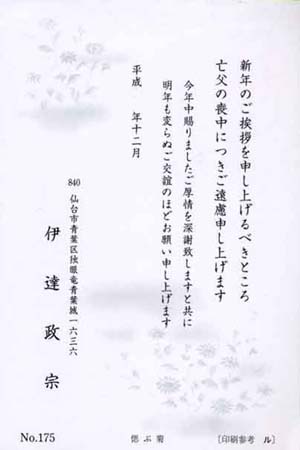 新年のご挨拶を申し上げるべきところ
亡父の喪中につきご遠慮申し上げます
今年中賜りましたご厚情を深謝致しますと共に
明年も変らぬご交誼のほどお願い申し上げます
平成　　年十二月
840
仙台市青葉区独眼竜青葉城一六三六
伊達政宗
No.175
偲ぶ菊
［印刷参考　ル］